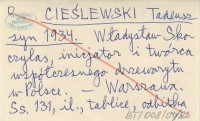 CIEŚLEWSKI Tadeusz
syn 1934. Władysław Sko-
czylas, inicjator i twórca
współczesnego drzeworytu
w Polsce. — Warszawa.
Ss. 131, il., tablice, odbitka